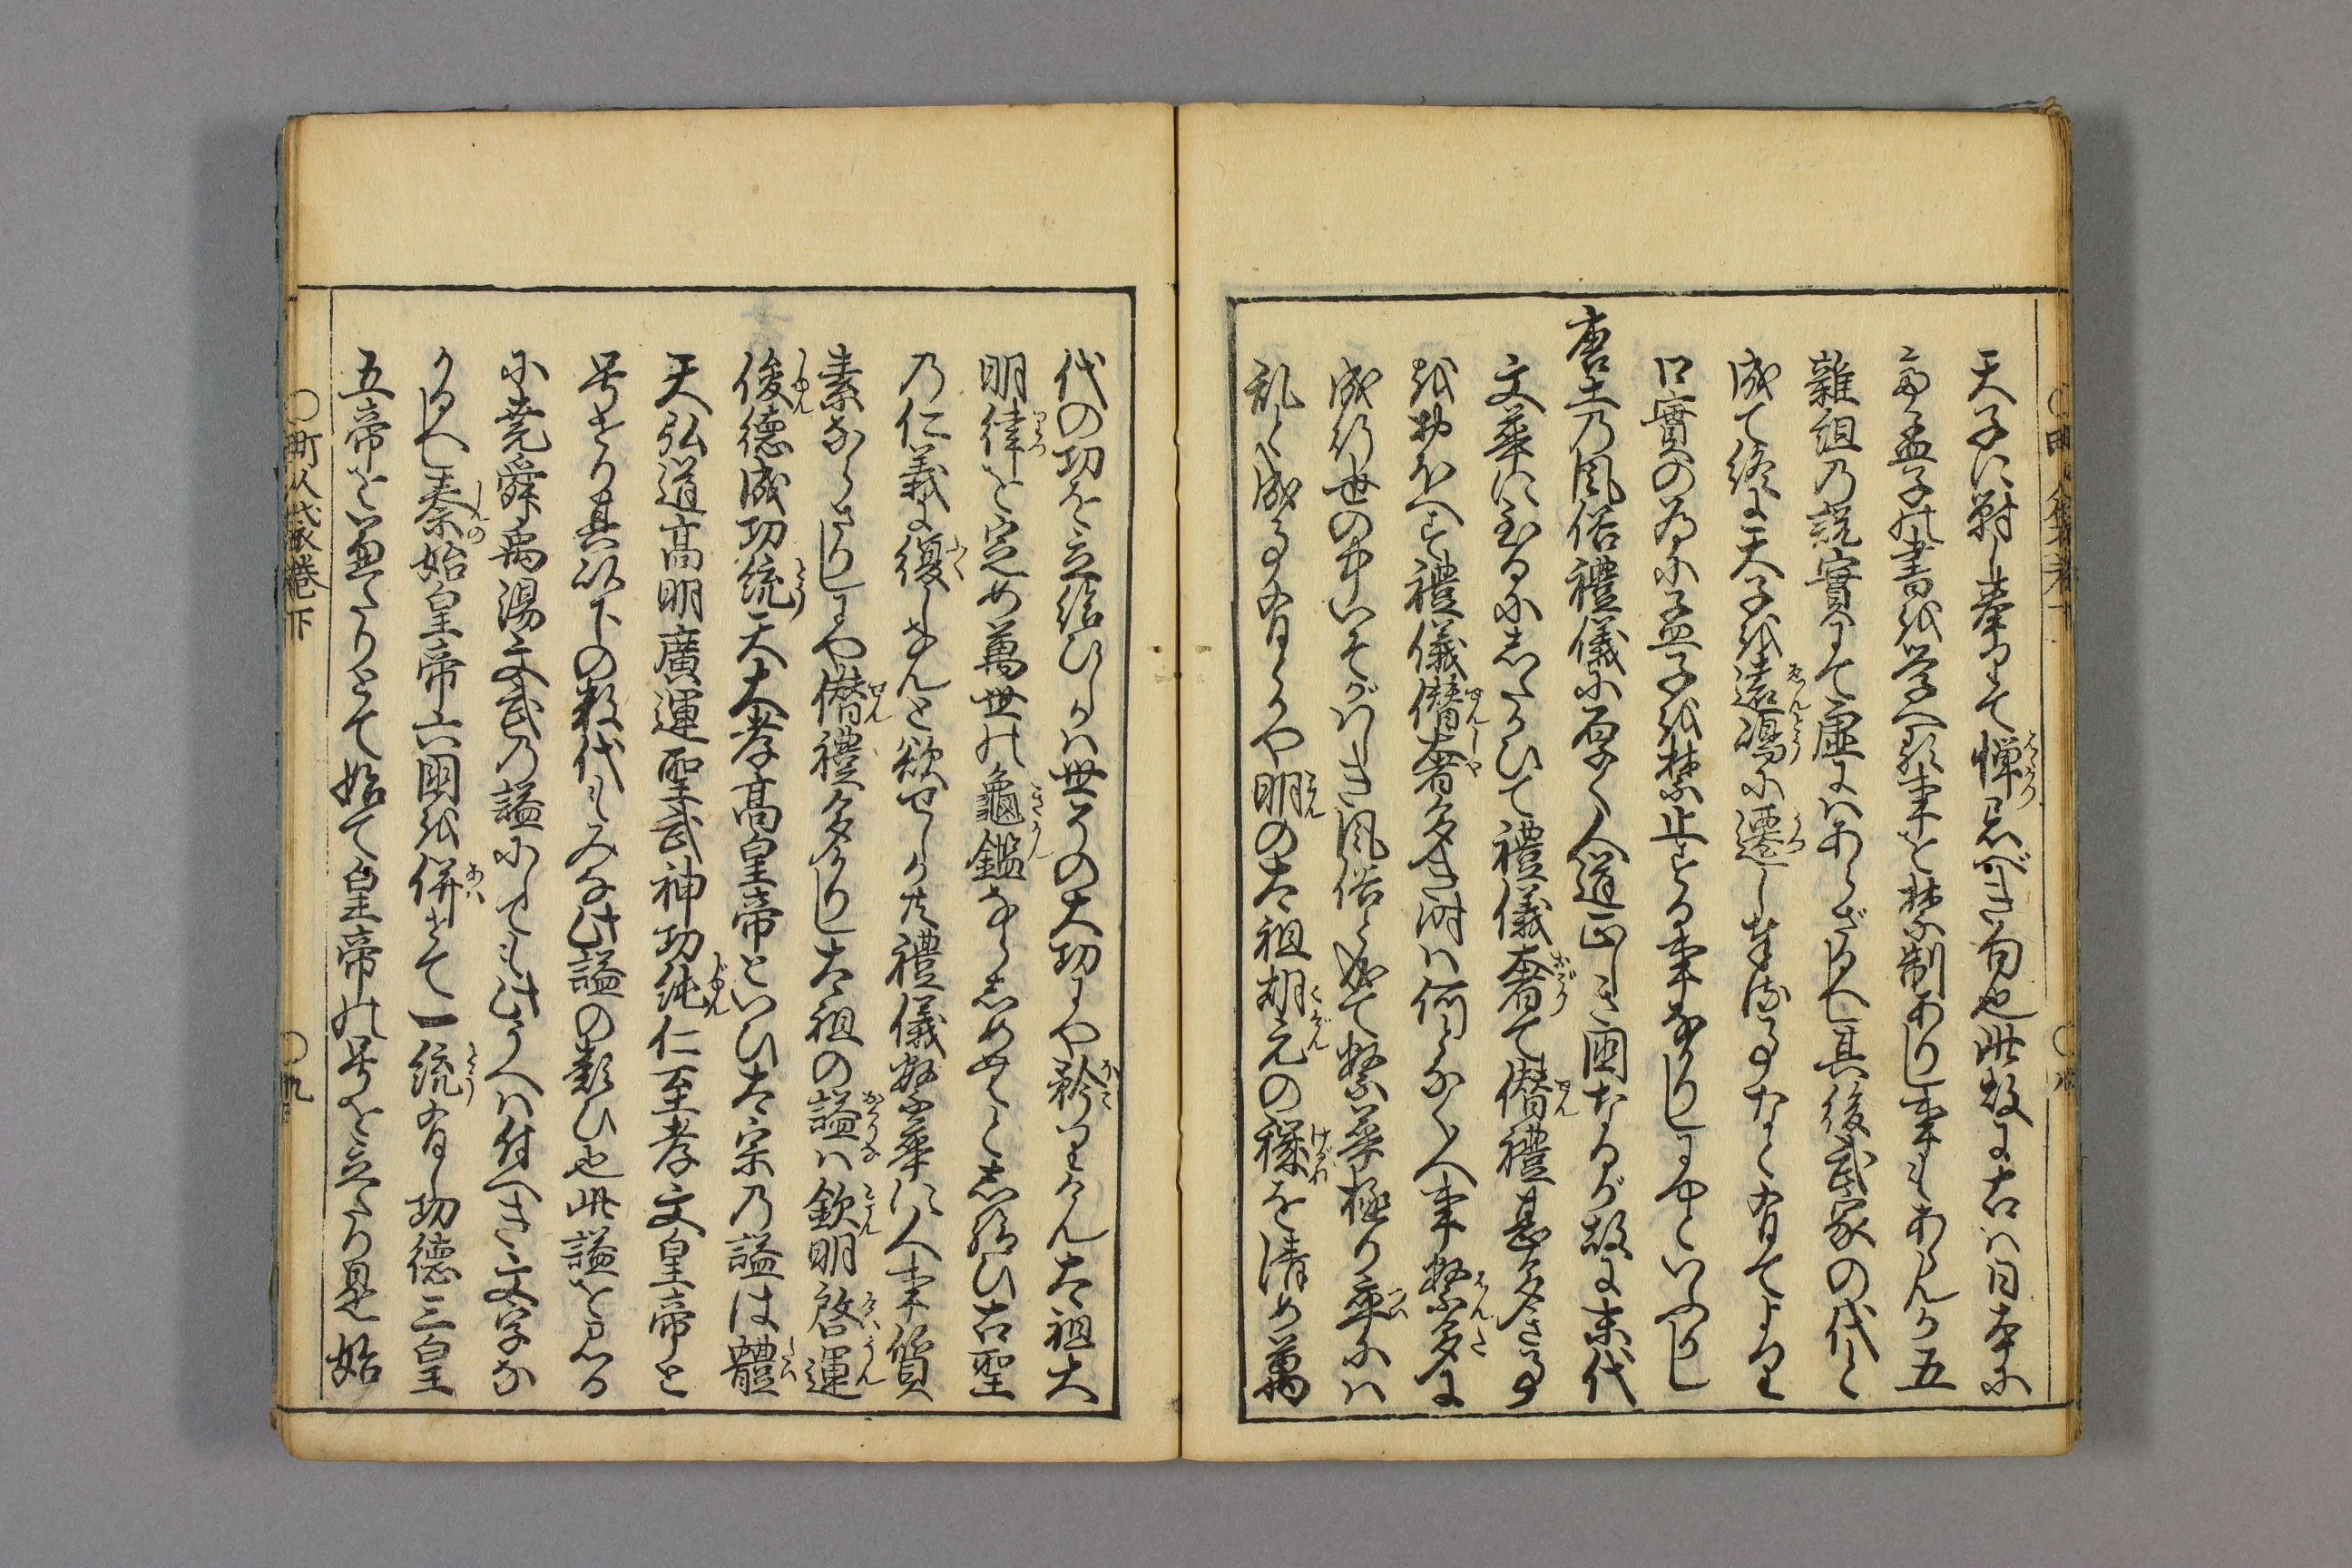 天子に對し奉りて憚忌べき句也此故に古は日本に
ても孟子の書を学へる事を禁制ありし事もあらんか五
雑俎の説實にて虚にはあらざるへし其後武家の代と
成て終に天子を遠嶋に遷し奉る事など有てより
口實の為に孟子を禁止する事なかりしにやといふかし
唐土の風俗禮儀に厚く人道正しき国なるが故に末代
文華に至るにしたかひて禮儀奢て僭禮甚多き事
を抑へて禮儀僭奢多き時は何となく人事繁多に
成行世の中いそがはしき風俗と成て繁華極り卒には
乱と成る事有とかや明の太祖胡元の穢を清め萬
代の功を立給ひしかは世々の大功にや矜りけん太祖大
明律を定め萬世の龜鑑ならしめんとし給ひ古聖
の仁義に復しなんと欲せしか共禮儀繁華に人事質
素ならさりしにや僭禮多かりし太祖の謚は欽明啓運
俊德成功統天大孝高皇帝といひ太宗の謚は體
天弘道高明廣運聖武神功純仁至孝文皇帝と
号せり其以下の数代もみな此謚の類ひ也此謚を見る
に堯舜禹湯文武の謚にても此うへは付へき文字な
かるへし秦始皇帝六国を併せて一統有し功德三皇
五帝を兼たりとて始て皇帝の号を立たり是始
〇町人袋巻下
〇九